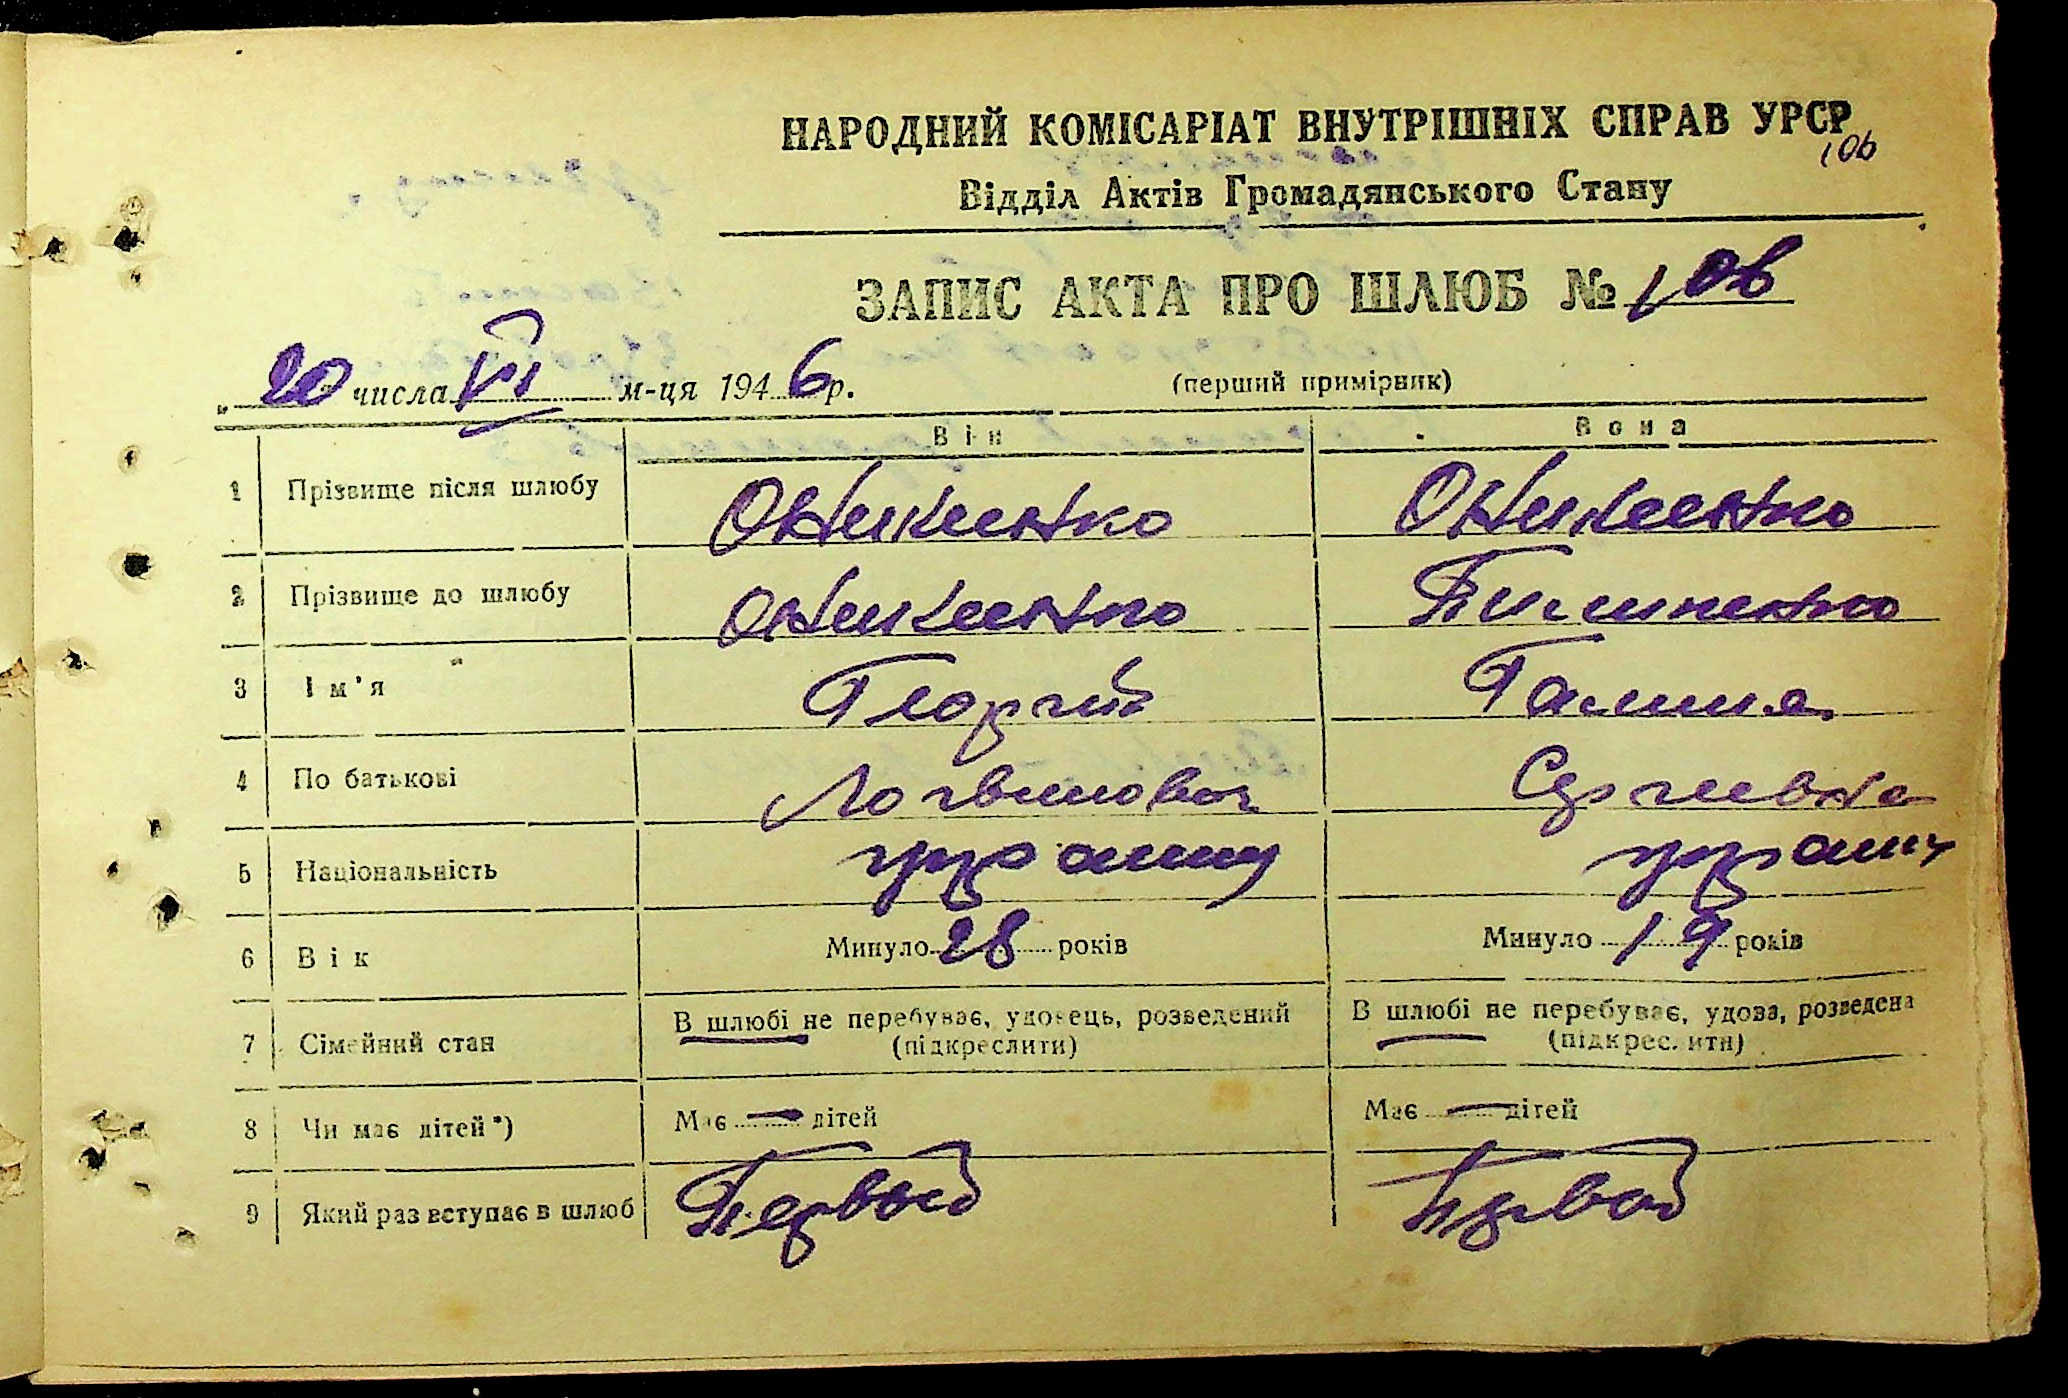 НАРОДНИЙ КОМІСАРІАТ ВНУТРІШНІХ СПРАВ УРСР
106
Відділ Актів Громадянського Стану
ЗАПИС АКТА ПРО ШЛЮБ № 106
„ 20 числа VI м-ця 1946 р. (перший примірник)
Він Вона
1 Прізвище після шлюбу Оникиенко Оникиенко
2 Прізвище до шлюбу Оникиенко
3 Ім'я Георгий Галина
4 По батькові Логвинович Сергеевна
5 Національність
6 Вік Минуло 28 років Минуло 19 років
7 Сімейний стан В шлюбі не перебуває, удовець, розведений В шлюбі не перебуває, удова, розведена
(підкреслити) (підкреслити)
8 Чи має дітей*) Має — дітей Має — дітей
9 Який раз вступає в шлюб Первый Первой